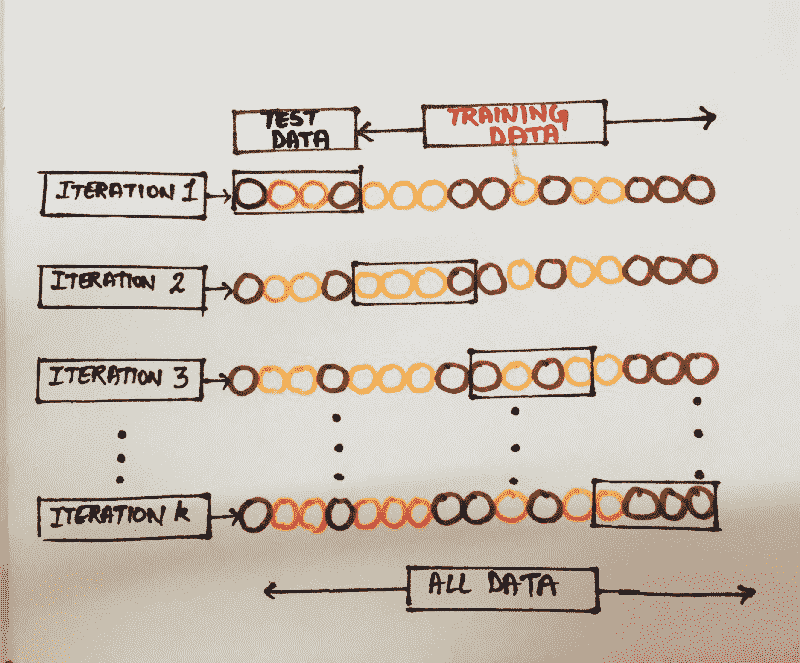 TEST
DATA
TRAINING
DATA
ITERATION 1
ITERATION 2
ITERATION 3
ITERATION k
ALL DATA